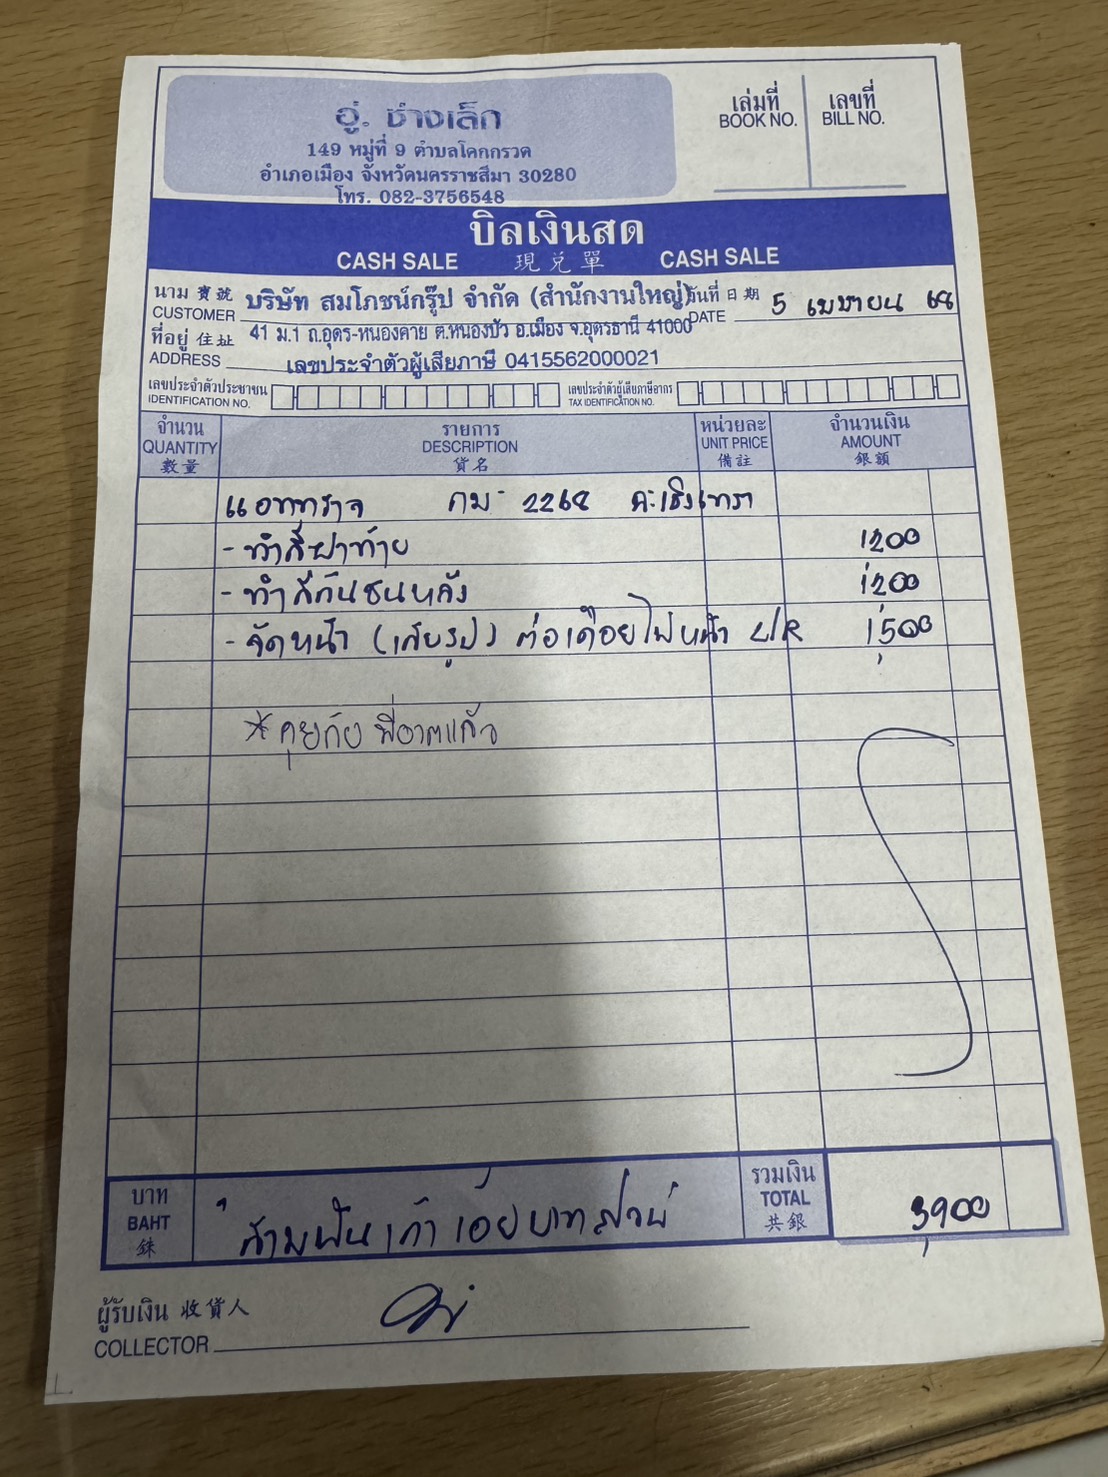 อู่. ช่างเล็ก
149 หมู่ที่ 9 ตำบลโคกกรวด
อำเภอเมือง จังหวัดนครราชสีมา 30280
โทร. 082-3756548
เล่มที่ เลขที่
BOOK NO. BILL NO.
บิลเงินสด
CASH SALE 現兌單 CASH SALE
นาม 寶號 บริษัท สมโภชน์กรุ๊ป จำกัด (สำนักงานใหญ่) วันที่ 日期 5 เมษายน 68
CUSTOMER DATE
ที่อยู่ 住址 41 ม.1 ถ.อุดร-หนองคาย ต.หนองบัว อ.เมือง จ.อุดรธานี 41000
ADDRESS เลขประจำตัวผู้เสียภาษี 0415562000021
เลขประจำตัวประชาชน เลขประจำตัวผู้เสียภาษีอากร
IDENTIFICATION NO. TAX IDENTIFICATION NO.
จำนวน รายการ หน่วยละ จำนวนเงิน
QUANTITY DESCRIPTION UNIT PRICE AMOUNT
數量 貨名 備註 銀額
แอททราจ กม 2268 ฉะเชิงเทรา
- ทำสีฝาท้าย 1200
- ทำสีกันชนหลัง 1200
- จัดหน้า (เสียรูป) ต่อเดือยไฟหน้า L/R 1,500
* คุยกับ พี่อาตแล้ว
บาท สามพันเก้าร้อยบาทถ้วน รวมเงิน 3,900
BAHT TOTAL
銖 共銀
ผู้รับเงิน 收貨人
COLLECTOR